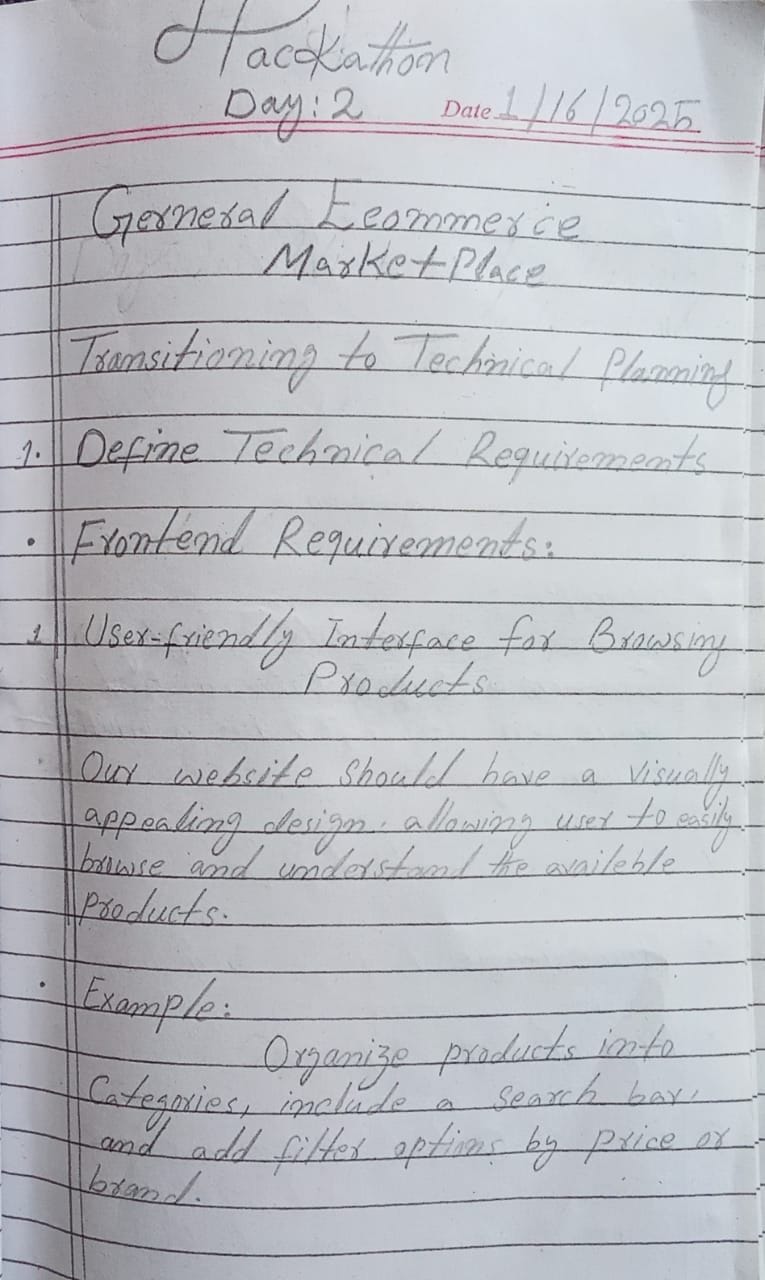 Hackathon
Day: 2 Date 1/16/2025
Gerneral Ecommerce
MarketPlace
Transitioning to Technical Planning
1. Define Technical Requirements
• Frontend Requirements:
1 User-friendly Interface for Browsing
Products
Our website should have a visually
appealing design. allowing user to easily
browse and understand the availeble
Products.
• Example:
Organize products into
Categories, include a search bar,
and add filter options by price or
brand.